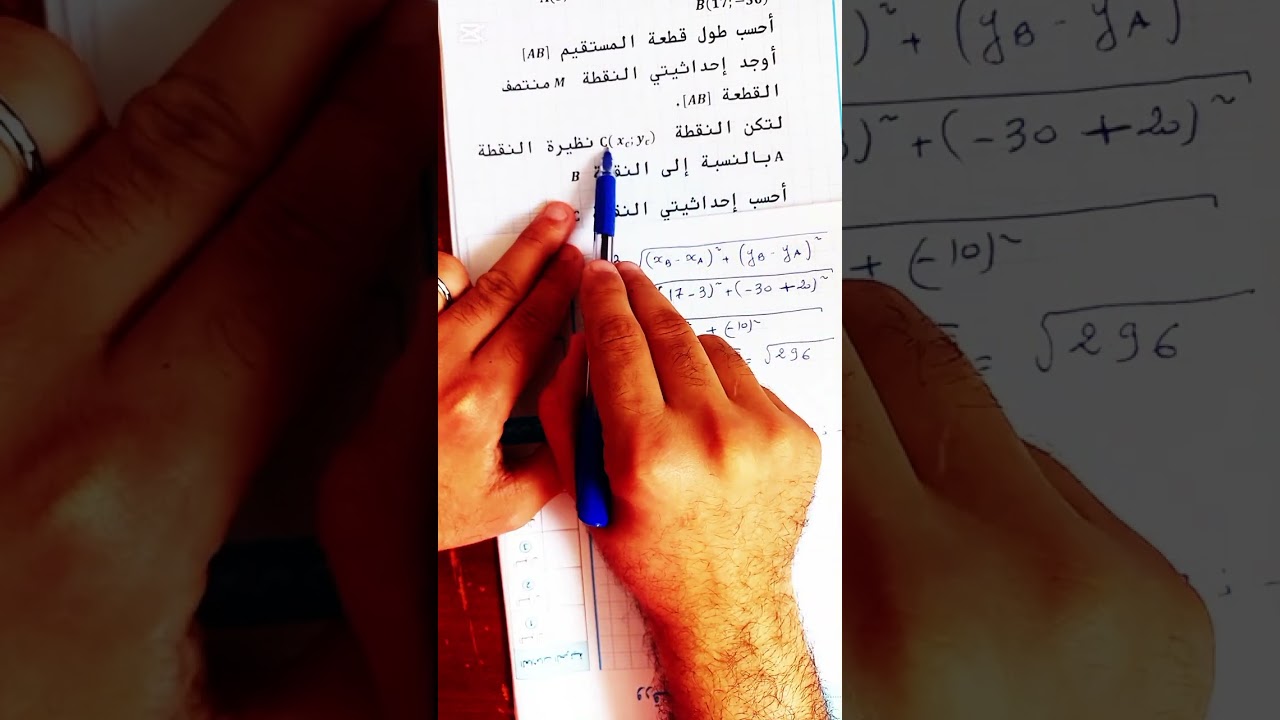 B(17;−30)
أحسب طول قطعة المستقيم [AB]
أوجد إحداثيتي النقطة M منتصف
القطعة [AB].
لتكن النقطة C(x_c; y_c) نظيرة النقطة
A بالنسبة إلى النقطة B
أحسب إحداثيتي
√(x_B - x_A)² + (y_B - y_A)²
17 - 3)² + (-30 + 20)²
+ (-10)²
= √296